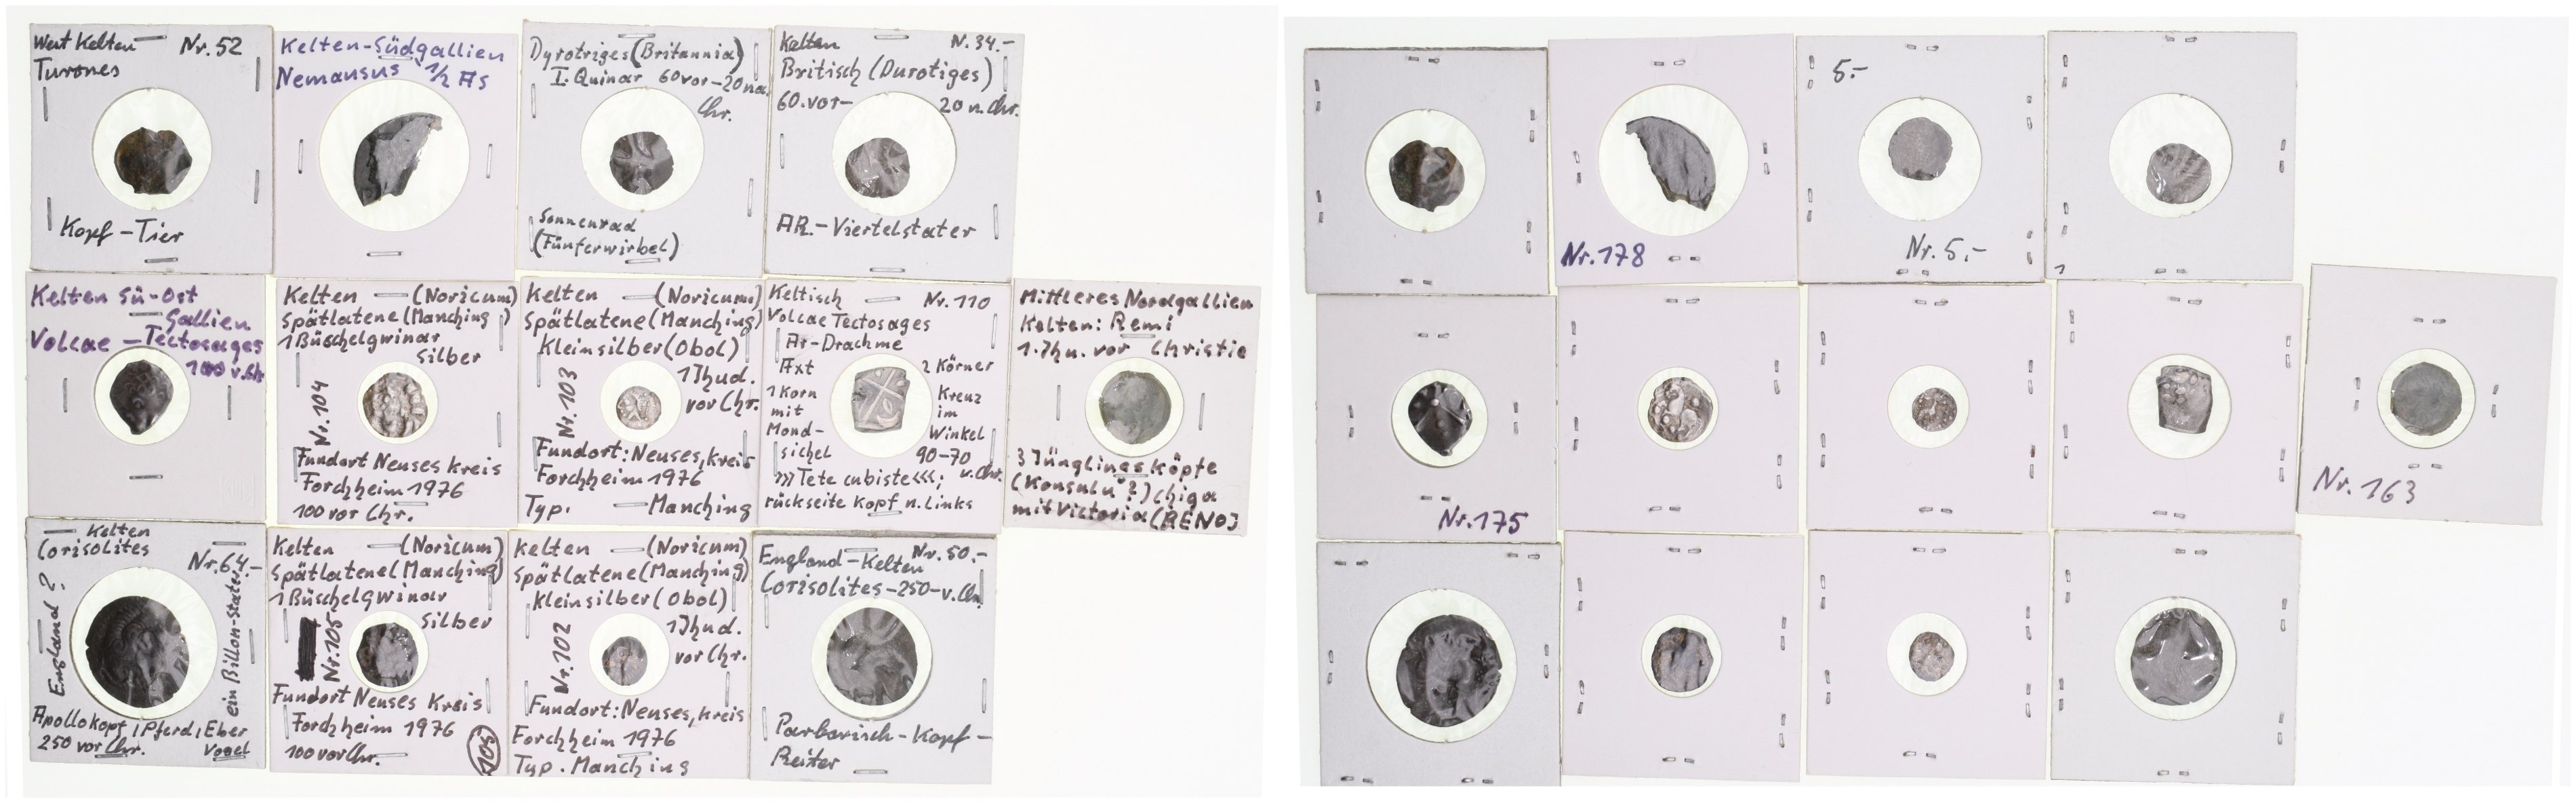 West Kelten Nr. 52
Turones
Kopf - Tier
Kelten-Südgallien
Nemausus 1/2 As
Dyrotriges (Britannia)
I. Quinar 60 vor - 20 na.
Chr.
Sonnenrad
(Fünferwirbel)
Kelten N. 34.-
Britisch (Durotiges)
60. vor - 20 n. Chr.
AR. - Viertelstater
Kelten Sü-Ost
Gallien
Volcae - Tectosages
100 v. Ch
Kelten — (Noricum)
Spätlatene (Manching)
1 Büschelqwinar
Silber
Nr. 104
Fundort Neuses Kreis
Forchheim 1976
100 vor Chr.
Kelten — (Noricum)
Spätlatene (Manching)
Kleinsilber (Obol)
1 Jhud.
vor Chr.
Nr. 103
Fundort: Neuses, Kreis
Forchheim 1976
Typ. — Manching
Keltisch Nr. 110
Volcae Tectosages
Ar-Drachme
Axt 2 Körner
1 Korn Kreuz
mit im
Mond- Winkel
sichel 90-70
v. Chr.
>>> Tete cubiste <<<;
rückseite Kopf n. Links
Mittleres Nordgallien
Kelten: Remi
1. Jhu. vor Christie
3 Jünglingsköpfe
(Konsulu?) chiga
mit Victoria (RENO)
Kelten
Corisolites
Nr. 64.-
England?
ein Billon-Stater
Apollokopf, Pferd, Eber
250 vor Chr. Vogel
Kelten — (Noricum)
Spätlatene (Manching)
1 Büschelqwinar
Silber
Nr. 105
Fundort Neuses Kreis
Forchheim 1976
100 vor Chr.
105
Kelten — (Noricum)
Spätlatene (Manching)
Kleinsilber (Obol)
1 Jhud.
vor Chr.
Nr. 102
Fundort: Neuses, Kreis
Forchheim 1976
Typ. Manching
England - Kelten Nr. 50.-
Corisolites - 250 - v. Chr.
Barbarisch - Kopf -
Reiter
Nr. 178
5.-
Nr. 5.-
1
Nr. 175
Nr. 163